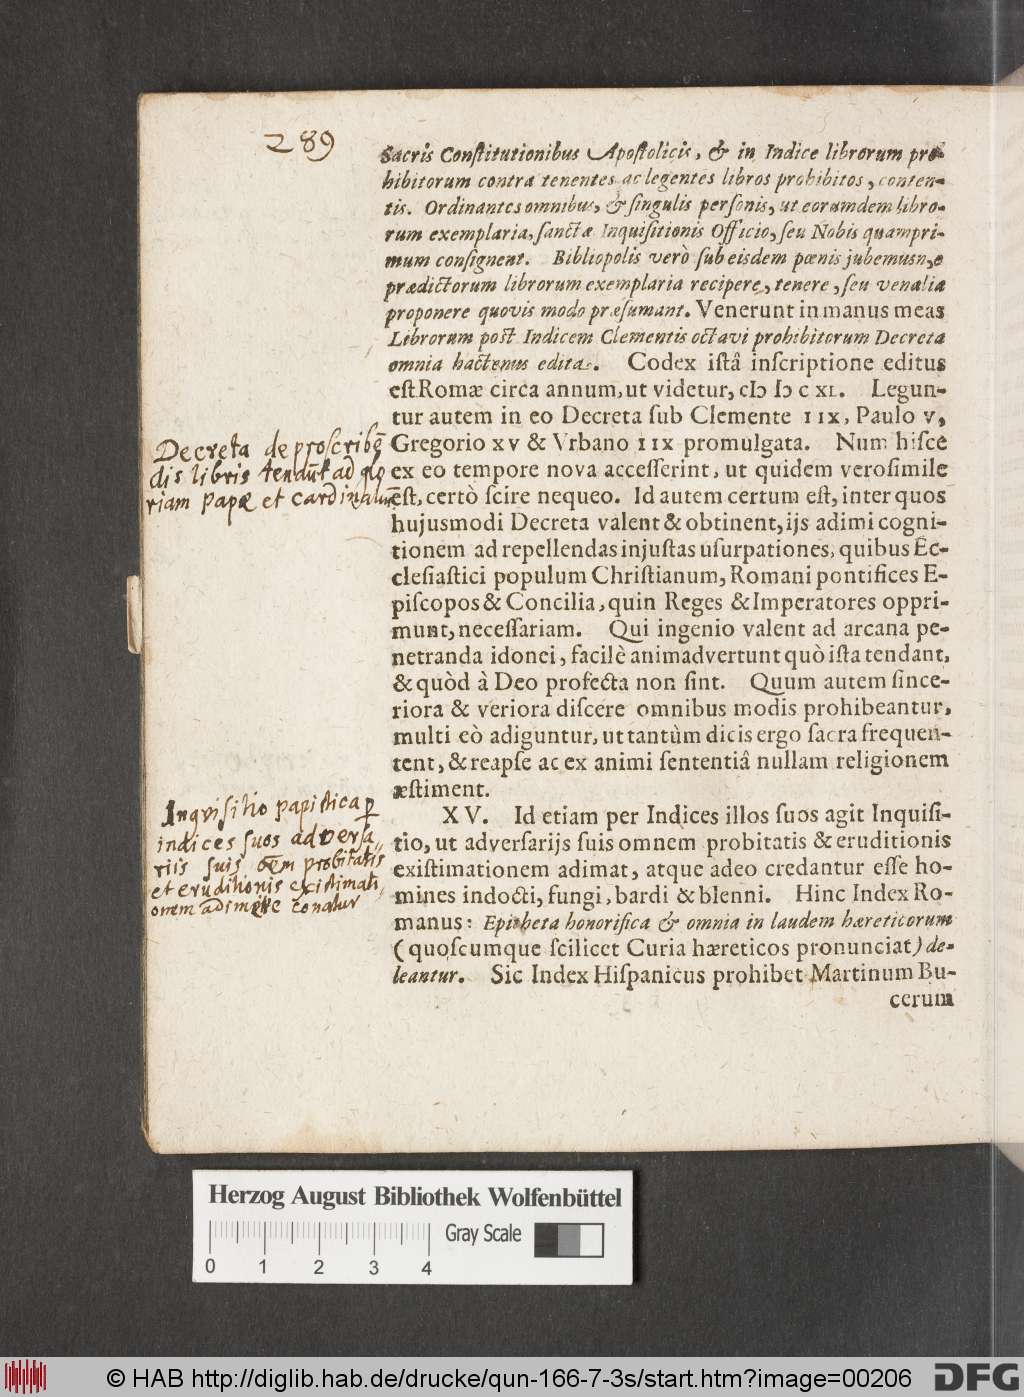 289
Sacris Conſtitutionibus Apoſtolicis, & in Indice librorum pro-
hibitorum contra tenentes ac legentes libros prohibitos, conten-
tis. Ordinantes omnibus, & ſingulis perſonis, ut eorumdem libro-
rum exemplaria, ſanctæ Inquiſitionis Officio, ſeu Nobis quampri-
mum conſignent. Bibliopolis verò ſub eisdem pœnis jubemus n,e
prædictorum librorum exemplaria recipere, tenere, ſeu venalia
proponere quovis modo præſumant. Venerunt in manus meas
Librorum poſt Indicem Clementis octavi prohibitorum Decreta
omnia hactenus edita. Codex iſtâ inſcriptione editus
eſt Romæ circa annum, ut videtur, cIↄ Iↄ c XL. Legun-
tur autem in eo Decreta ſub Clemente IIX, Paulo V,
Gregorio XV & Vrbano IIX promulgata. Num hiſce
ex eo tempore nova acceſſerint, ut quidem veroſimile
eſt, certò ſcire nequeo. Id autem certum eſt, inter quos
hujusmodi Decreta valent & obtinent, ijs adimi cogni-
tionem ad repellendas injuſtas uſurpationes, quibus Ec-
cleſiaſtici populum Chriſtianum, Romani pontifices E-
piſcopos & Concilia, quin Reges & Imperatores oppri-
munt, neceſſariam. Qui ingenio valent ad arcana pe-
netranda idonei, facilè animadvertunt quò iſta tendant,
& quòd à Deo profecta non ſint. Quum autem ſince-
riora & veriora diſcere omnibus modis prohibeantur,
multi eò adiguntur, ut tantùm dicis ergo ſacra frequen-
tent, & reapſe ac ex animi ſententiâ nullam religionem
æſtiment.
XV. Id etiam per Indices illos ſuos agit Inquiſi-
tio, ut adverſarijs ſuis omnem probitatis & eruditionis
exiſtimationem adimat, atque adeo credantur eſſe ho-
mines indocti, fungi, bardi & blenni. Hinc Index Ro-
manus: Epitheta honorifica & omnia in laudem hæreticorum
(quoſcumque ſcilicet Curia hæreticos pronunciat) de-
leantur. Sic Index Hiſpanicus prohibet Martinum Bu-
cerum
Decreta de proſcribē
dis libris tendūt ad glo
riam papæ et cardinaliū
Inqviſitio papiſtica ꝑ
indices ſuos adverſa„
riis ſuis oēm probitatis
et eruditionis exiſtimati„
onem adimere conatur
Herzog August Bibliothek Wolfenbüttel
Gray Scale
0 1 2 3 4
© HAB http://diglib.hab.de/drucke/qun-166-7-3s/start.htm?image=00206
DFG